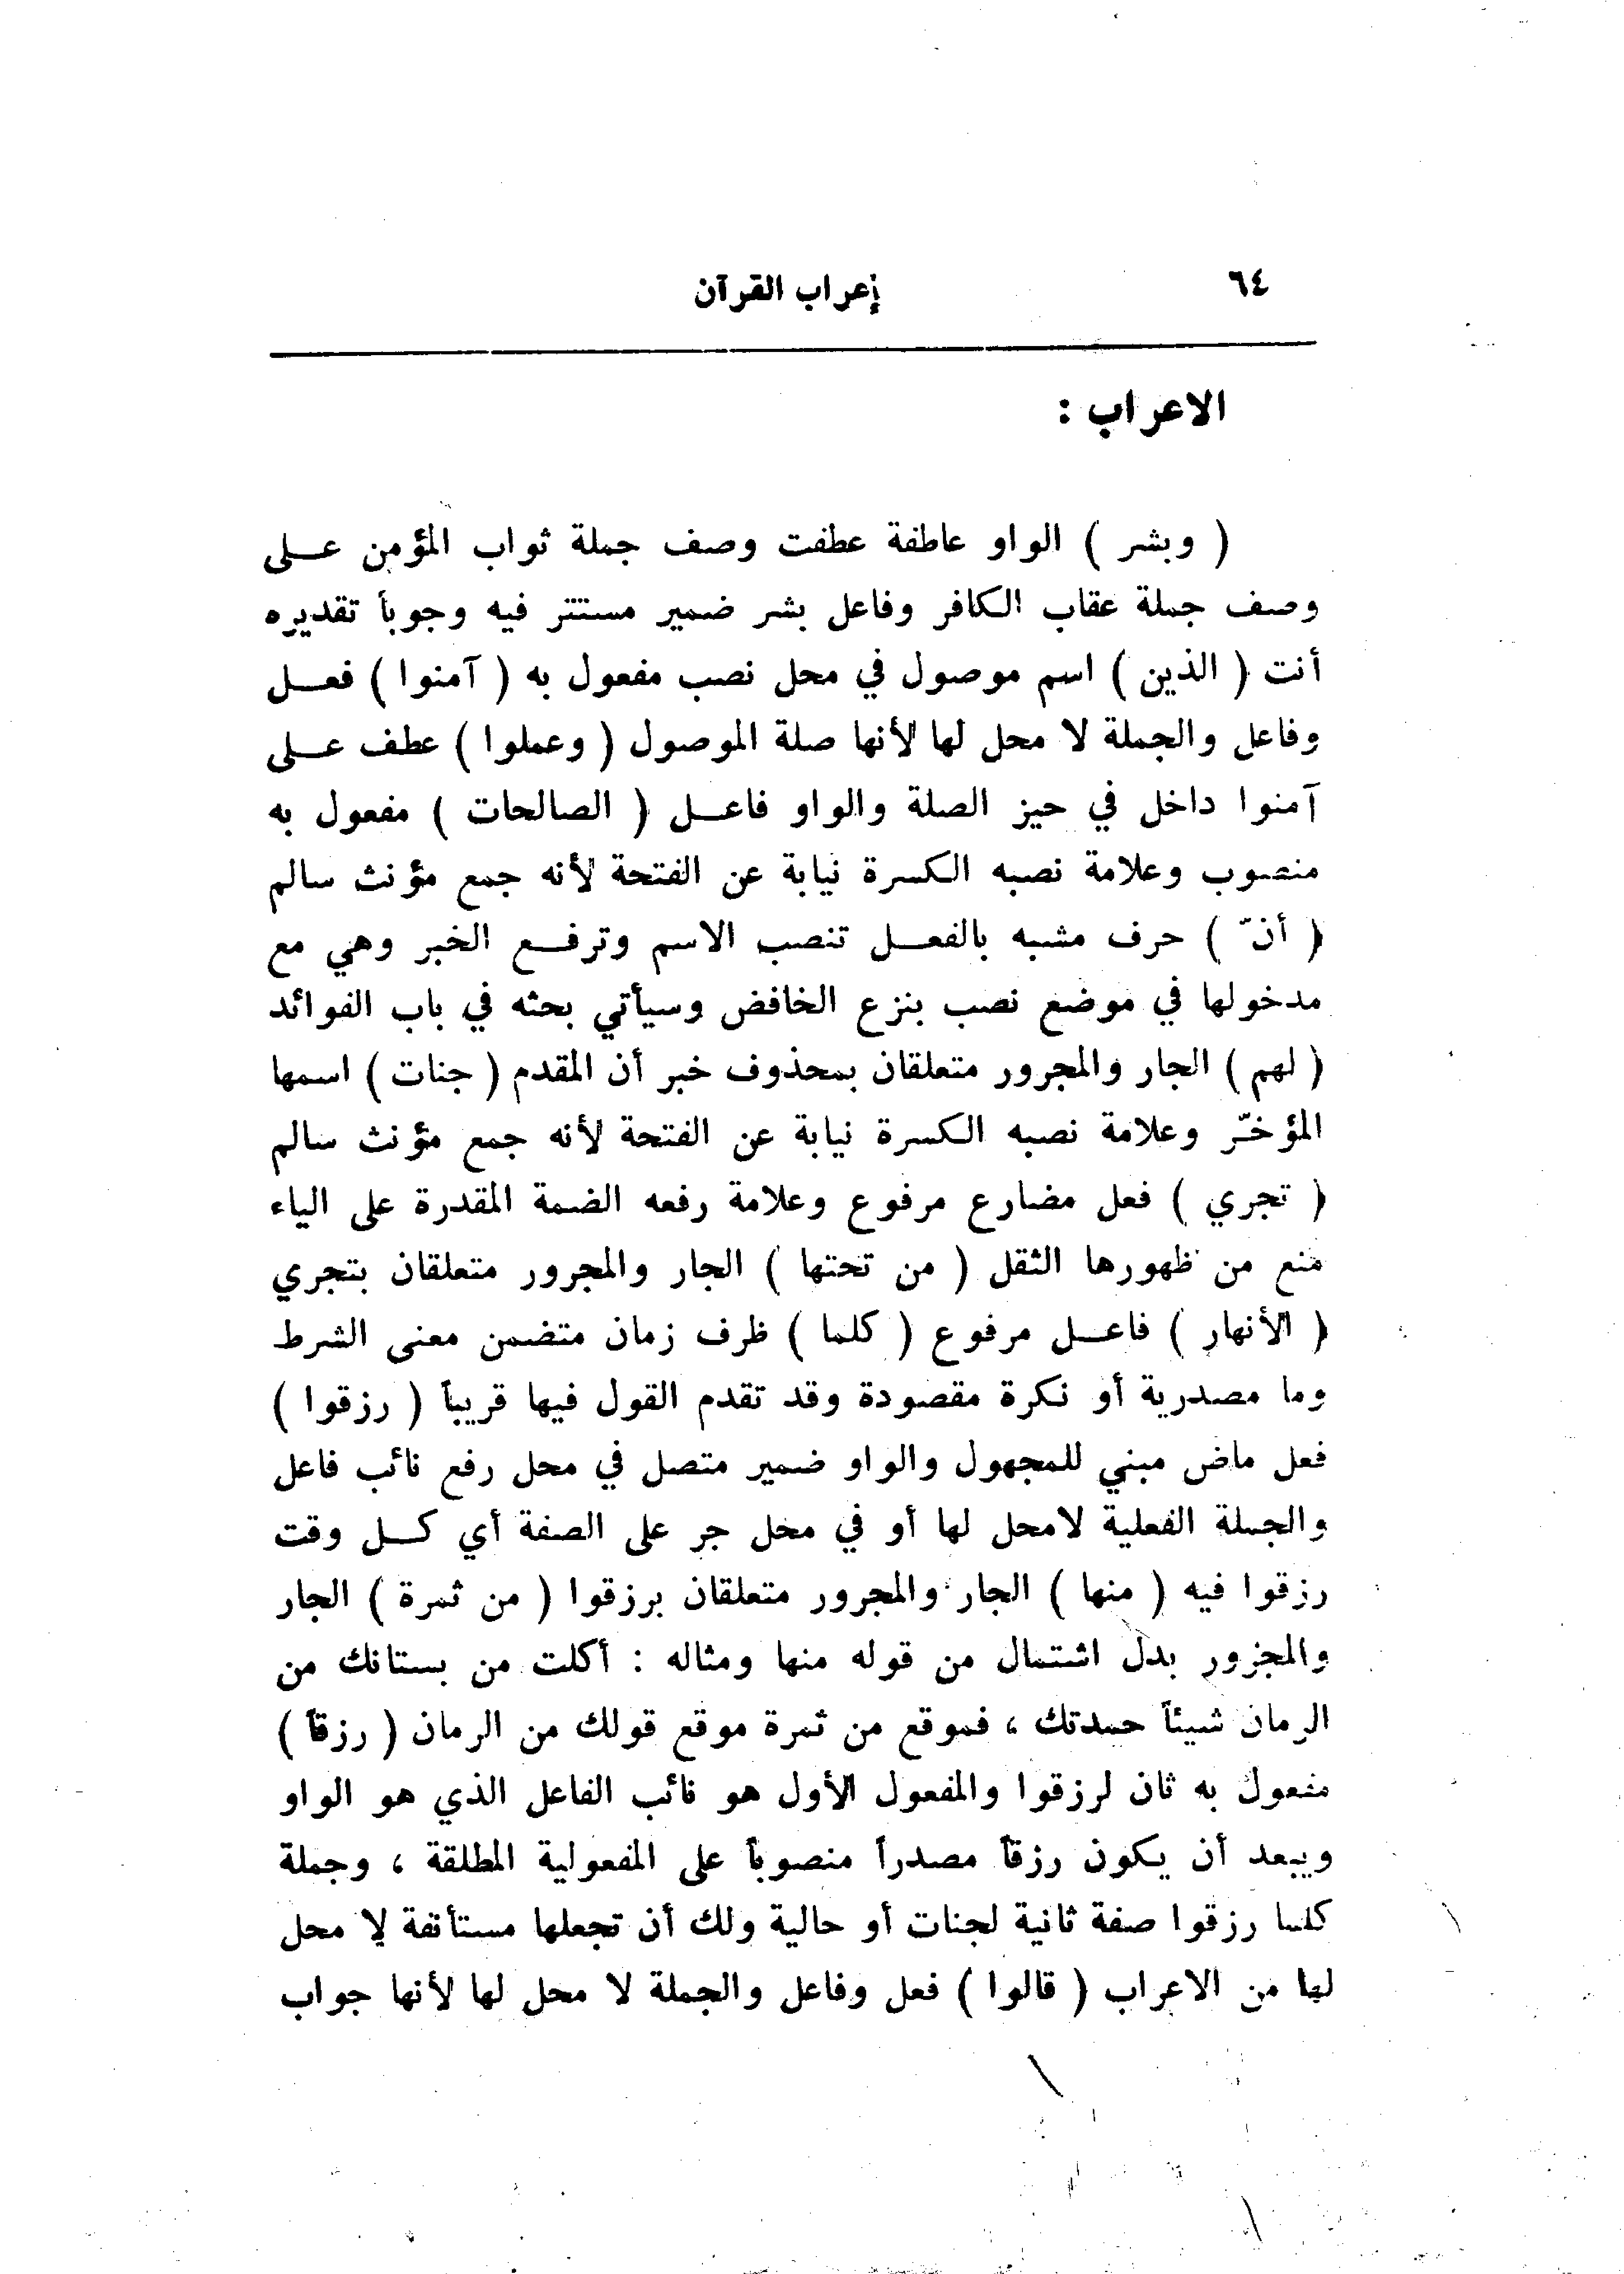 ٦٤
إعراب القرآن
الاعراب :
( وبشر ) الواو عاطفة عطفت وصف جملة ثواب المؤمن على
وصف جملة عقاب الكافر وفاعل بشر ضمير مستتر فيه وجوباً تقديره
أنت ( الذين ) اسم موصول في محل نصب مفعول به ( آمنوا ) فعل
وفاعل والجملة لا محل لها لأنها صلة الموصول ( وعملوا ) عطف على
آمنوا داخل في حيز الصلة والواو فاعل ( الصالحات ) مفعول به
منصوب وعلامة نصبه الكسرة نيابة عن الفتحة لأنه جمع مؤنث سالم
( أنّ ) حرف مشبه بالفعل تنصب الاسم وترفع الخبر وهي مع
مدخولها في موضع نصب بنزع الخافض وسيأتي بحثه في باب الفوائد
( لهم ) الجار والمجرور متعلقان بمحذوف خبر أن المقدم ( جنات ) اسمها
المؤخّر وعلامة نصبه الكسرة نيابة عن الفتحة لأنه جمع مؤنث سالم
( تجري ) فعل مضارع مرفوع وعلامة رفعه الضمة المقدرة على الياء
منع من ظهورها الثقل ( من تحتها ) الجار والمجرور متعلقان بتجري
( الأنهار ) فاعل مرفوع ( كلما ) ظرف زمان متضمن معنى الشرط
وما مصدرية أو نكرة مقصودة وقد تقدم القول فيها قريباً ( رزقوا )
فعل ماض مبني للمجهول والواو ضمير متصل في محل رفع نائب فاعل
والجملة الفعلية لامحل لها أو في محل جر على الصفة أي كل وقت
رزقوا فيه ( منها ) الجار والمجرور متعلقان برزقوا ( من ثمرة ) الجار
والمجزور بدل اشتمال من قوله منها ومثاله : أكلت من بستانك من
الرمان شيئاً حمدتك ، فموقع من ثمرة موقع قولك من الرمان ( رزقاً )
مفعول به ثان لرزقوا والمفعول الأول هو نائب الفاعل الذي هو الواو
ويبعد أن يكون رزقاً مصدراً منصوباً على المفعولية المطلقة ، وجملة
كلما رزقوا صفة ثانية لجنات أو حالية ولك أن تجعلها مستأنفة لا محل
لها من الاعراب ( قالوا ) فعل وفاعل والجملة لا محل لها لأنها جواب